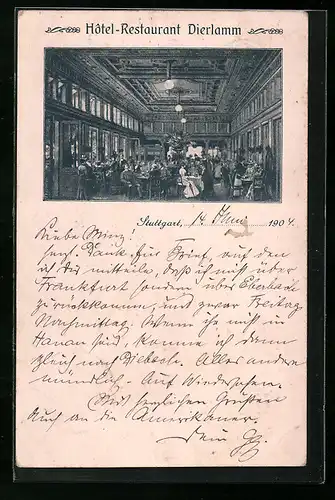 Hôtel-Restaurant Dierlamm
Stuttgart, 14. Juni 1904.
Liebe
herz. Dank für Brief, auf den
ich dir mitteile, daß ich nicht über
Frankfurt sondern über Eberbach
zurückkomme, und zwar Freitag
Nachmittag. Wenn ihr nicht in
Hanau seid, komme ich dann
gleich nach Alles andere
mündlich. Auf Wiedersehen.
Mit herzlichen Grüßen
Auch an die Amerikaner.
Dein